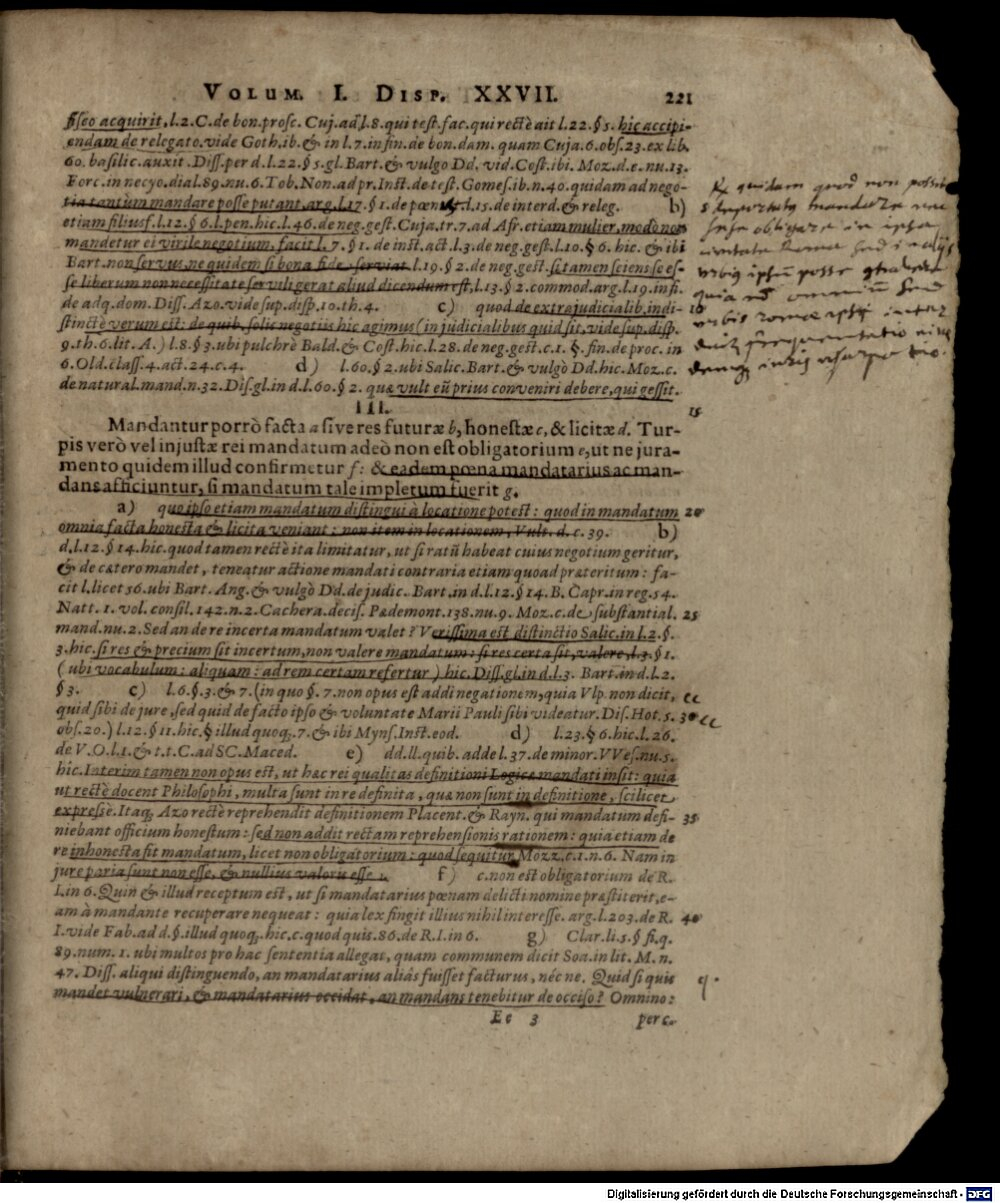 VOLUM. I. DISP. XXVII. 221
fisco acquirit, l.2.C.de bon.prosc. Cuj.ad l.8.qui test.fac.qui rectè ait l.22.§5. hic accipi-
endam de relegato.vide Goth.ib.& in l.7.in fin.de bon.dam. quam Cuja.6.obs.23.ex lib.
60. basilic.auxit. Diss.per d.l.22.§5.gl.Bart.& vulgo Dd. vid.Cost.ibi. Moz.d.c.nu.13.
Forc.in necyo.dial.89.nu.6.Tob.Non.ad pr.Inst.de test.Gomes.ib.n.40.quidam ad nego-
tia tantùm mandare posse putant.arg.l.17.§1.de pœnis l.15.de interd.& releg. b)
etiam filiusf.l.12.§6.l.pen.hic.l.46.de neg.gest.Cuja.tr.7.ad Afr.etiam mulier,modò non
mandetur ei virile negotium, facit l.7.§1. de inst.act.l.3.de neg.gest.l.10.§6.hic.& ibi
Bart.non servus,ne quidem si bona fide serviat l.19.§2.de neg.gest.si tamen sciens se es-
se liberum non necessitate servili gerat aliud dicendum est,l.13.§2.commod.arg.l.19.in fi.
de adq.dom.Diss. Azo.vide sup.disp.10.th.4. c) quod de extrajudicialib.indi- 10
stinctè verum est: de quib. solis negotiis hic agimus (in judicialibus quid sit,vide sup.disp.
9.th.6.lit.A.) l.8.§3.ubi pulchrè Bald.& Cost.hic.l.28.de neg.gest.c.1.§.fin.de proc.in
6.Old.class.4.act.24.c.4. d) l.60.§2.ubi Salic.Bart.& vulgò Dd.hic.Moz.c.
de natural.mand.n.32.Dis.gl.in d.l.60.§2. quæ vult eũ prius conveniri debere,qui gessit.
III. 15
Mandantur porrò facta a sive res futuræ b, honestæ c, & licitæ d. Tur-
pis verò vel injustæ rei mandatum adeò non est obligatorium e, ut ne jura-
mento quidem illud confirmetur f: & eadem pœna mandatarius ac man-
dans afficiuntur, si mandatum tale impletum fuerit g.
a) quo ipso etiam mandatum distingui à locatione potest: quod in mandatum 20
omnia facta honesta & licita veniant: non item in locationem, Vult. d. c. 39. b)
d.l.12.§14.hic.quod tamen rectè ita limitatur, ut si ratũ habeat cuius negotium geritur,
& de cætero mandet, teneatur actione mandati contraria etiam quoad præteritum: fa-
cit l.licet 56.ubi Bart. Ang.& vulgò Dd.de judic. Bart.in d.l.12.§14.B.Capr.in reg.54.
Natt.1.vol.consil.142.n.2.Cachera.decis.Pædemont.138.nu.9.Moz.c.de substantial. 25
mand.nu.2.Sed an de re incerta mandatum valet? Verissima est distinctio Salic.in l.2.§.
3.hic.si res & precium sit incertum,non valere mandatum: si res certa sit,valere,l.3.§1.
(ubi vocabulum: aliquam: ad rem certam refertur) hic.Diss.gl.in d.l.3. Bart.in d.l.2.
§3. c) l.6.§.3.& 7.(in quo §.7.non opus est addi negationem,quia Vlp.non dicit, cc
quid sibi de jure,sed quid de facto ipso & voluntate Marii Pauli sibi videatur.Dis.Hot.5. 30 cc
obs.20.) l.12.§11.hic.§ illud quoq.7.& ibi Myns.Inst.eod. d) l.23.§6.hic.l.26.
de V.O.l.1.& t.t.C.ad SC.Maced. e) dd.ll.quib.adde l.37.de minor.VVes.nu.5.
hic.Interim tamen non opus est, ut hæc rei qualitas definitioni Logicæ mandati insit: quia
ut rectè docent Philosophi, multa sunt in re definita, quæ non sunt in definitione, scilicet
expressè. Itaq; Azo rectè reprehendit definitionem Placent.& Rayn. qui mandatum defi- 35
niebant officium honestum: sed non addit rectam reprehensionis rationem: quia etiam de
re inhonesta fit mandatum, licet non obligatorium: quod sequitur Mozz.c.1.n.6. Nam in
jure paria sunt non esse, & nullius valoris esse. f) c.non est obligatorium de R.
I.in 6.Quin & illud receptum est, ut si mandatarius pœnam delicti nomine præstiterit,e-
am à mandante recuperare nequeat: quia lex fingit illius nihil interesse. arg.l.203.de R. 40
I.vide Fab.ad d.§.illud quoq.hic.c.quod quis.86.de R.I.in 6. g) Clar.li.5.§ fi.q.
89.num.1.ubi multos pro hac sententia allegat, quam communem dicit Soa.in lit. M.n.
47. Diss. aliqui distinguendo, an mandatarius aliàs fuisset facturus, nécne. Quid si quis
mandet vulnerari, & mandatarius occidat, an mandans tenebitur de occiso? Omnino:
Ee 3 per c.
Digitalisierung gefördert durch die Deutsche Forschungsgemeinschaft - DFG